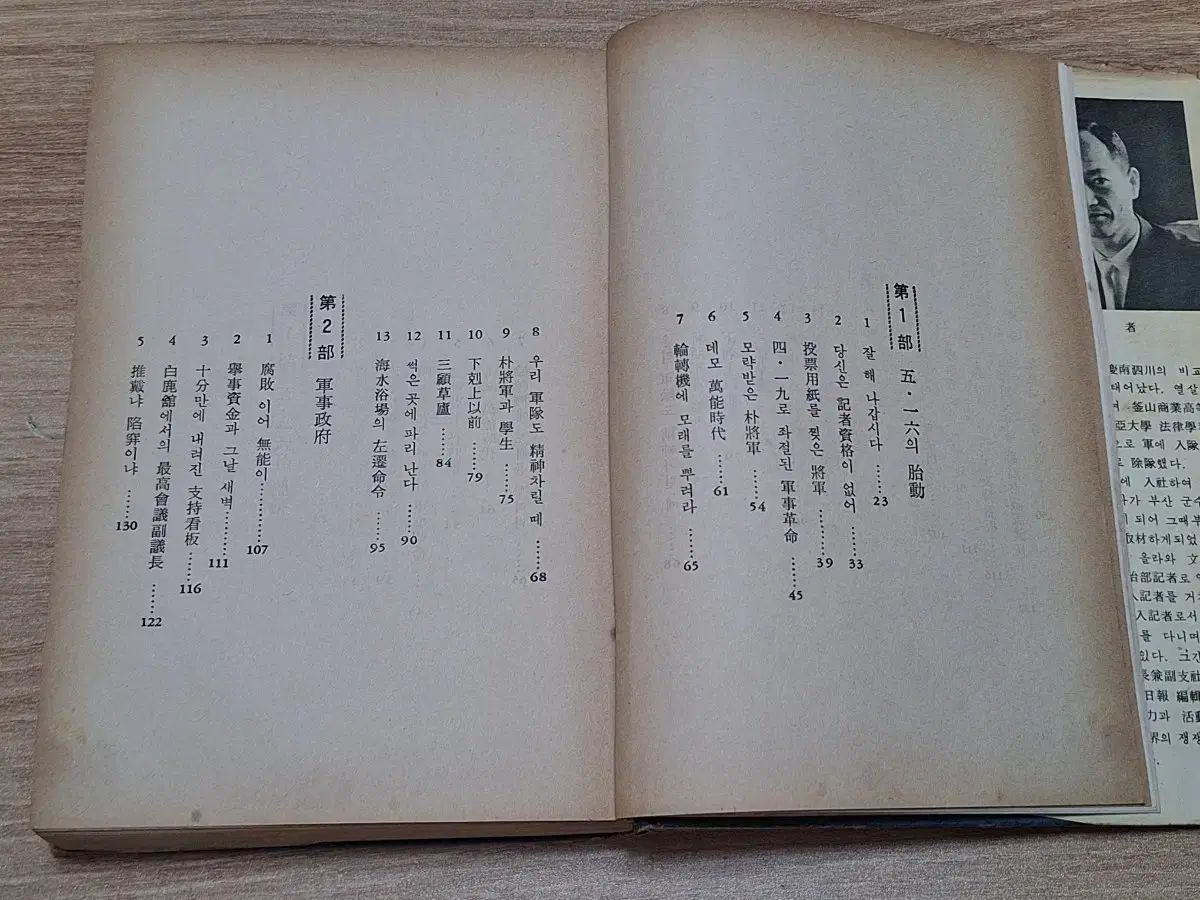 第1部 五·一六의 胎動
1 잘 해 나갑시다 ……23
2 당신은 記者資格이 없어 ……33
3 投票用紙를 찢은 將軍 ……39
4 四·一九로 좌절된 軍事革命 ……45
5 모략받은 朴將軍 ……54
6 데모 萬能時代 ……61
7 輪轉機에 모래를 뿌려라 ……65
8 우리 軍隊도 精神차릴 때 ……68
9 朴將軍과 學生 ……75
10 下剋上以前 ……79
11 三顧草廬 ……84
12 썩은 곳에 파리 난다 ……90
13 海水浴場의 左遷命令 ……95
第2部 軍事政府
1 腐敗 이어 無能이 ……107
2 擧事資金과 그날 새벽 ……111
3 十分만에 내려진 支持看板 ……116
4 白鹿館에서의 最高會議副議長 ……122
5 推戴냐 陷穽이냐 ……130
者
慶南泗川의 비교
태어났다. 열살
釜山商業高等
亞大學 法律學
으로 軍에 入隊
로 除隊했다.
에 入社하여
가 부산 군수
되어 그때부
取材하게되었
올라와 文
治部記者로
人記者를 거
入記者로서
를 다니며
있다. 그간
長兼副支社
日報 編輯
力과 活動
界의 쟁쟁